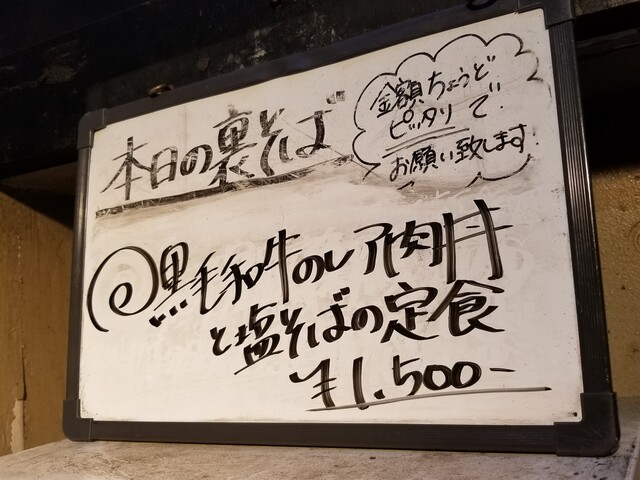 本日の裏そば
金額ちょうど
ピッタリで
お願い致します。
黒毛和牛のレア肉丼
と塩そばの定食
¥1,500-